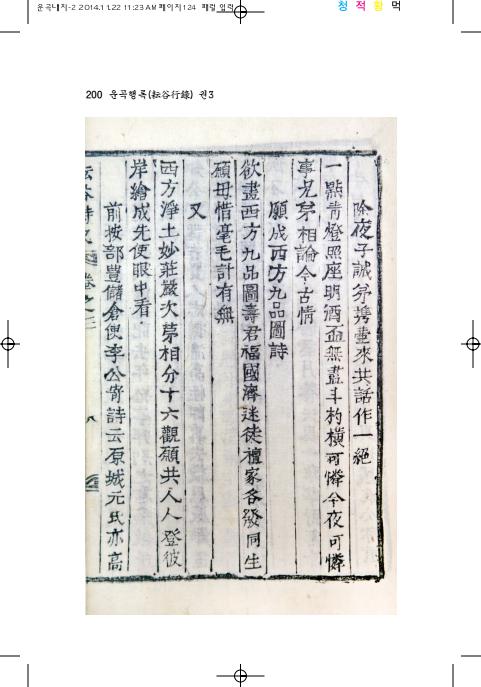 운곡내지-2 2014.11.22 11:23 AM 페이지124
청 적 황 먹
200 운곡행록(耘谷行錄) 권3
除夜子誠弟携壺來共話作一絶
一點靑燈照座明酒盃無盡斗杓橫可憐今夜可憐
事兄弟相論今古情
願成西方九品圖詩
欲畫西方九品圖壽君福國濟迷徒檀家各發同生
願毋惜毫毛計有無
又
西方淨土妙莊嚴次苐相分十六觀願共人人登彼
岸繪成先使眼中看
前按部豊儲倉使李公寄詩云原城元氏亦高